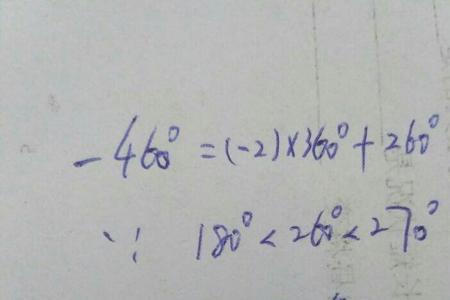 -460° = (-2)×360° + 260°
∵ 180° < 260° < 270°